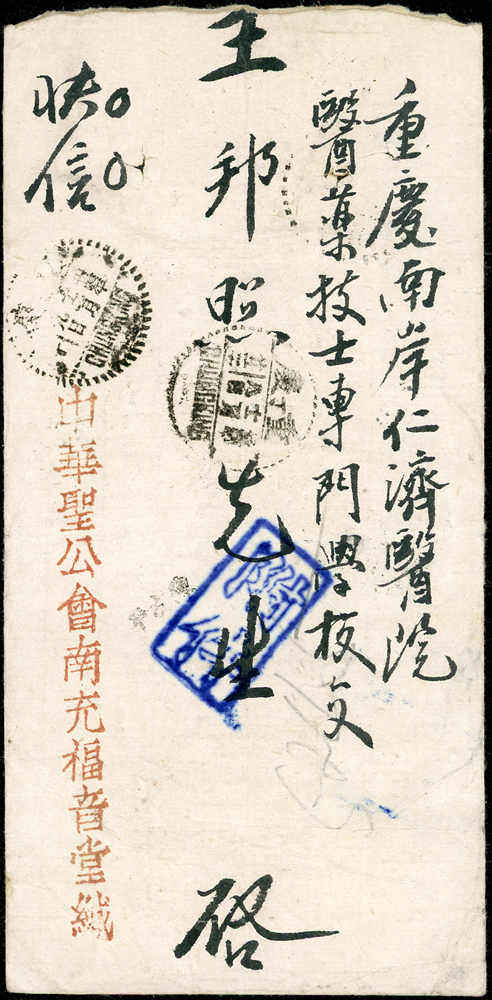 重慶南岸仁濟醫院
醫藥技士專門學校交
王邦照先生
啓
快信
中華聖公會南充福音堂緘
CHUNGKING
CHUNGKING